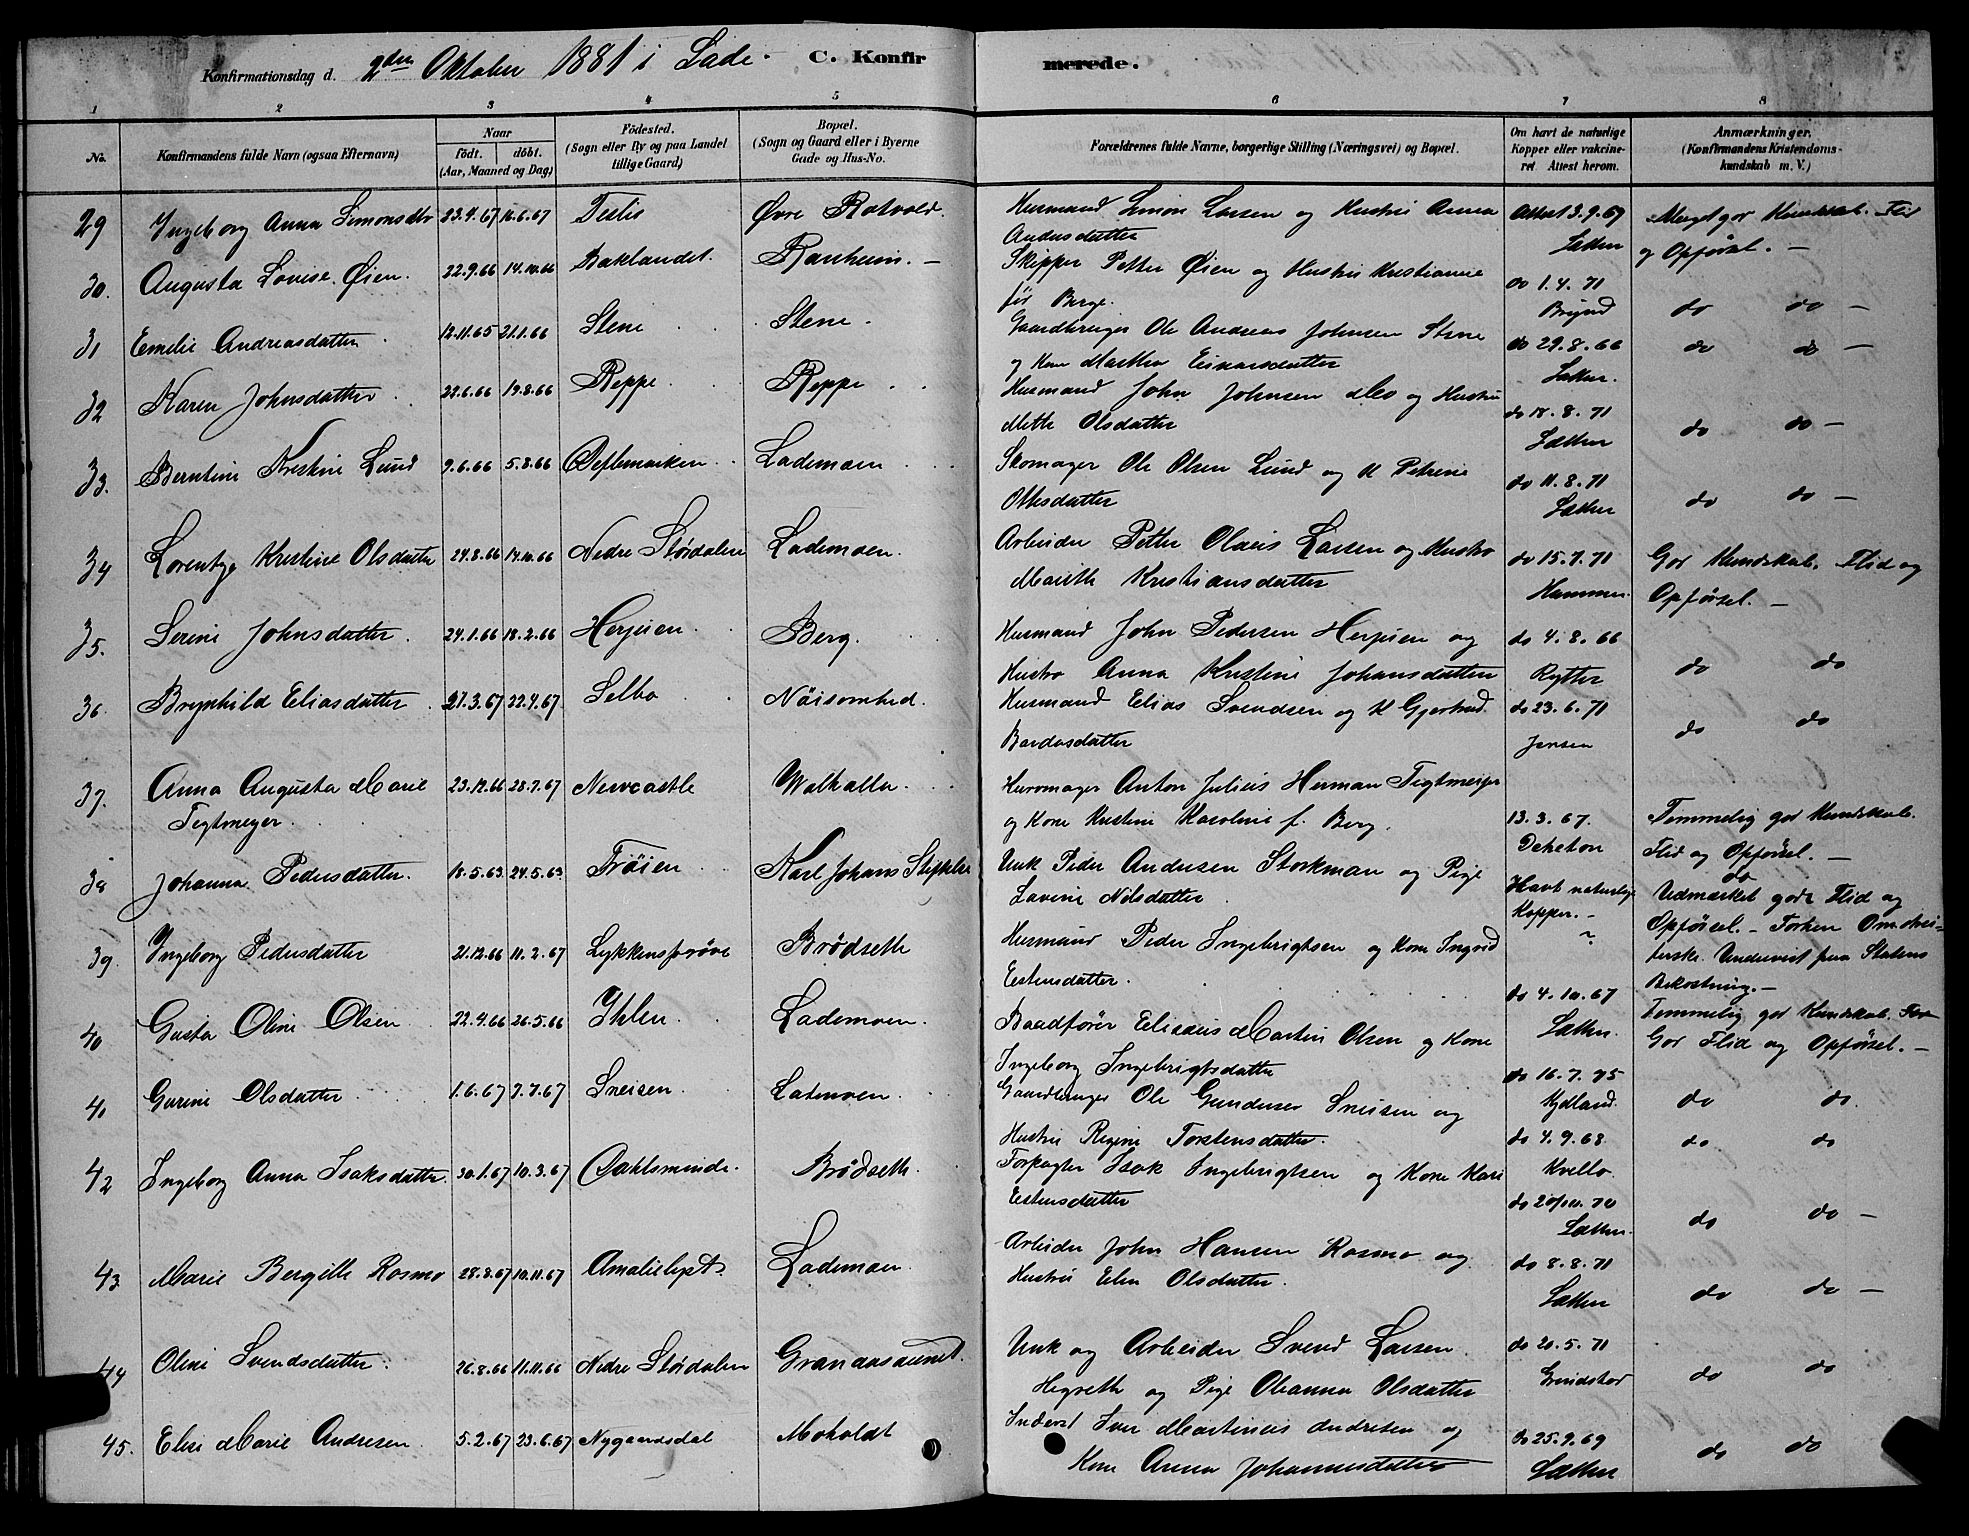 Konfirmationsdag d. 2den Oktober 1881 i Lade. C. Konfirmerede.
1 2 3 4 5 6 7 8
No. Konfirmandens fulde Navn (ogsaa Efternavn) Naar födt. döbt. (Aar, Maaned og Dag) Födested. (Sogn eller By og paa Landet tillige Gaard) Bopæl. (Sogn og Gaard eller i Byerne Gade og Hus-No. Forældrenes fulde Navne, borgerlige Stilling (Næringsvei) og Bopæl. Om havt de naturlige Kopper eller vakcineret Attest herom. Anmærkninger, (Konfirmandens Kristendomskundskab m. V.)
29 Ingeborg Anna Simonsdtr 23.4.67 16.6.67 Teslis Øvre Rotvold. Husmand Simon Larsen og Hustru Anna Andersdatter Attest 3.9.69 Sætter Meget god Kundskab. Flid og Opførsel. —
30. Augusta Lovise Øien. 22.9.66 14.10.66 Baklandet. Ranheim. — Skipper Petter Øien og Hustru Kristianne før Berge. do 1.4.71 do do —
31 Emelie Andreasdatter. 12.11.65 21.1.66 Stene Stene. Gaardbruger Ole Andreas Johnsen Stene og Kone Martha Einarsdatter do 29.8.66 Sætter. do do —
32 Karen Johnsdatter. 22.6.66 19.8.66 Reppe Reppe Husmand John Johnsen Mo og Hustru Mette Olsdatter do 18.8.71 Sætter do do —
33. Berntine Kristine Lund 9.6.66 5.8.66 Lademoen Skomager Ole Olsen Lund og H Petrine Ottesdatter do 11.8.71 Sætter do do —
34 Lorentze Kristine Olsdatter 24.8.66 14.10.66 Nedre Størdalen Lademoen. Arbeider Petter Olaus Larsen og Hustro Marith Kristiansdatter do 15.7.71 Hammer. God Kundskab. Flid og Opførsel. —
35. Serine Johnsdatter. 24.1.66 18.2.66 Herjuen Berg. Husmand John Pedersen Herjuen og Hustro Anna Kristine Johansdatter do 4.8.66 Rytter do do
36. Brynhild Eliasdatter 21.3.67 22.4.67 Selbo Nöisomhed. Husmand Elias Svendsen og H Gjertrud Bardosdatter do 23.6.71 Jensen do do
37. Anna Augusta Marie Tegtmeyer. 23.12.66 28.7.67 Newcastle Walhalla. Anton Julius Herman Tegtmeyer og Kone Kristine Karoline f. Berg. 13.3.67. Temmelig god Kundskab. Flid og Opførsel. —
38 Johanna Pedersdatter. 18.5.63 24.5.63 Trøien Karl Johans Stiftelse Unk Peder Andersen Storkman og Pige Lavine Nilsdatter Havt naturlige Kopper. — do Udmærket gode Flid og Opførsel. — Underv<br>ist paa Statens Bekostning. —
39. Ingeborg Pedersdatter 21.12.66 11.2.67 Lykkensprøve Brødseth Husmand Peder Ingebrigtsen og Kone Ingrid Estensdatter. do 4.10.67 Sætter. Temmelig god Kundskab. God Flid og Opførsel. —
40 Gusta Oline Olsen 22.4.66 26.5.66 Ihlen Lademoen. Baadfører Elisæus Martin Olsen og Kone Ingeborg Ingebrigtsdatter do 16.7.75 Kydland. do do.
41 Gurine Olsdatter 1.6.67 7.7.67 Sneisen Lademoen. Gaardbruger Ole Gundersen Sneisen og Hustru Regine Torstensdatter. do 4.9.68 Kvello do do
42 Ingeborg Anna Isaksdatter 30.1.67 10.3.67 Dahlsminde. Brödseth. Forpagter Isak Ingebrigtsen og Kone Kari Estensdatter do 20/10.70 Sætter. do do —
43 Marie Bergitte Rosmo 28.8.67 10.11.67 Amalielyst Lademoen Arbeider John Hansen Rosmo og Hustru Elen Olsdatter. do 8.8.71 Sætter do do —
44 Oline Svendsdatter. 26.8.66 11.11.66 Nedre Størdalen Grandaunet. Unk og Arbeider Svend Larsen Hegreth og Pige Oleanna Olsdatter do 20.5.71 do do
45. Elise Marie Andresen 5.2.67 23.6.67 Nygaardsdal Moholdt Inderst Iver Martinus Andresen og Kone Anna Johannesdatter do 25.9.69 Sætter do do